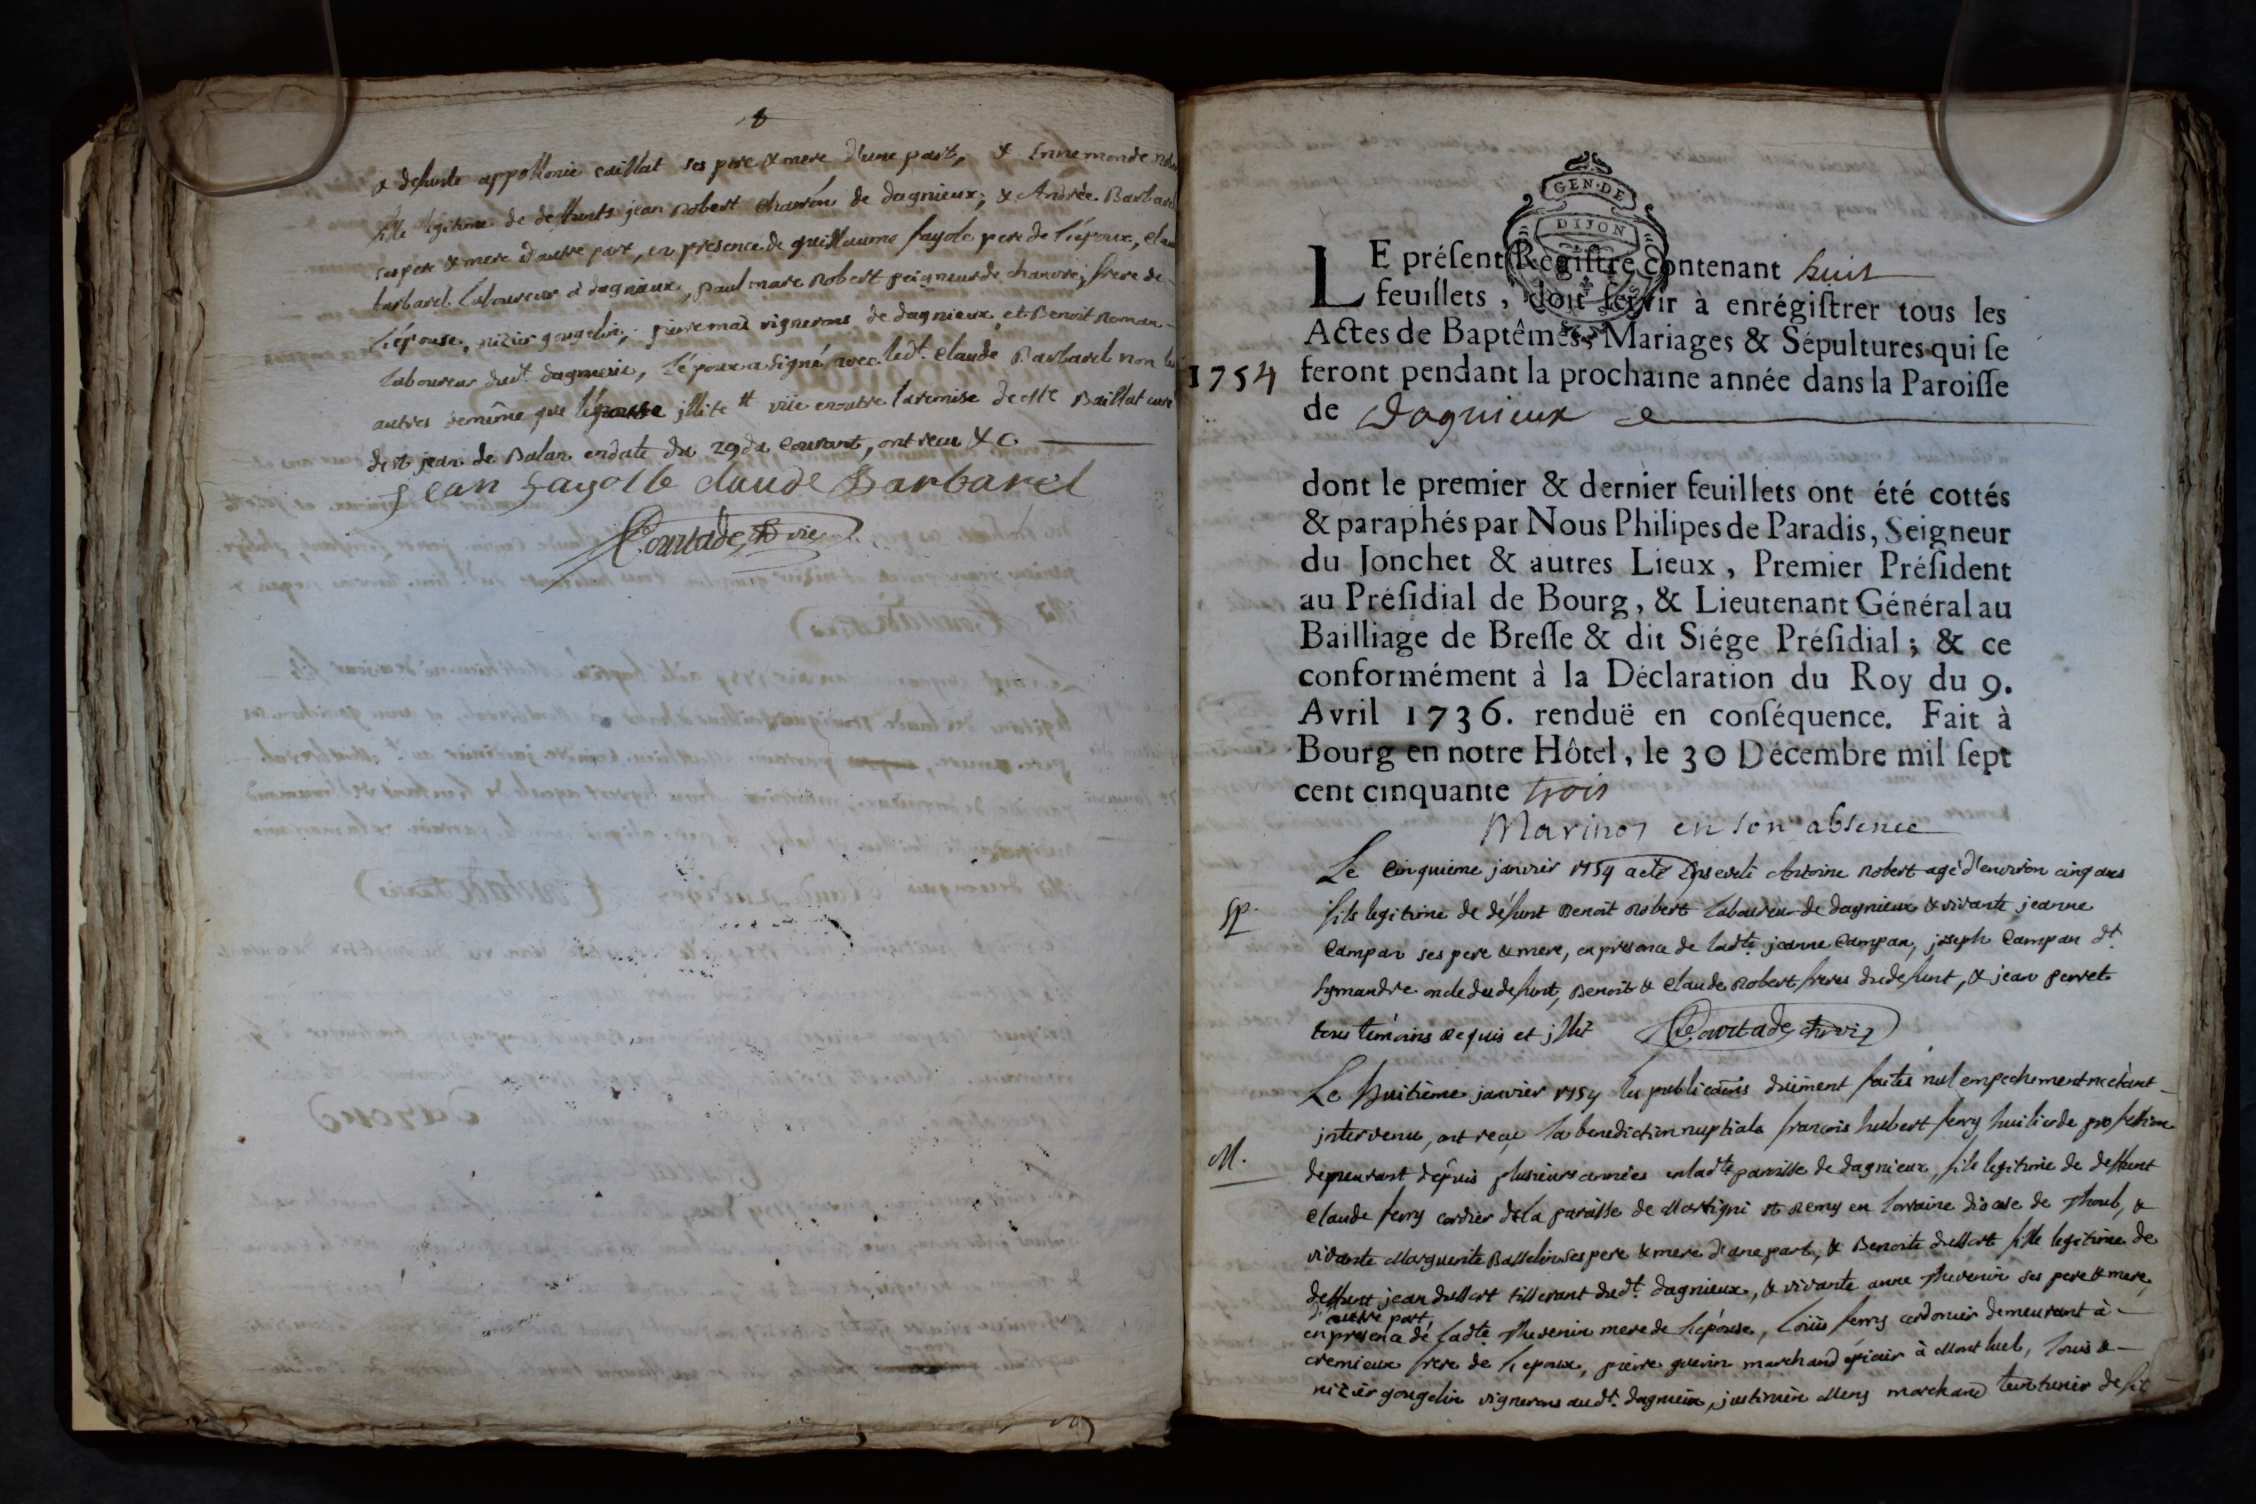 8
& defunte appollonie caillat ses pere & mere d'une part, & Ennemonde
fille legitime de deffunts jean Robert charron de dagnieux, & Andrée Barbarel
ses pere & mere d'autre part, en presence de guillaume fayole pere de l'epoux, 
barbarel laboureur à dagnieux, paul marc Robert peigneur de chanvre, frere de
l'epouse, nizier gongelin, pierre mas vignerons de dagnieux, et Benoit Roman
laboureur dudt. dagnieux, l'epoux a signé avec ledt. claude Barbarel non les
autres de même que l'epouse illite vüe en outre la remise de Baillat curé
de st jean de Balan en date du 29 du courant, ont recu &c.
jean fayolle claude Barbarel
Courtade vic
GEN·DE
DIJON
LE préſent Regiſtre contenant huit
feuillets, doit ſervir à enrégiſtrer tous les
Actes de Baptêmes, Mariages & Sépultures qui ſe
1754 feront pendant la prochaine année dans la Paroiſſe
de Dagnieux
dont le premier & dernier feuillets ont été cottés
& paraphés par Nous Philipes de Paradis, Seigneur
du Jonchet & autres Lieux, Premier Préſident
au Préſidial de Bourg, & Lieutenant Général au
Bailliage de Breſſe & dit Siége Préſidial; & ce
conformément à la Déclaration du Roy du 9.
Avril 1736. renduë en conſéquence. Fait à
Bourg en notre Hôtel, le 30 Décembre mil ſept
cent cinquante trois
en son absence
Le cinquieme janvier 1754 a eté Enseveli Antoine Robert agé d'environ cinq ans
Sp. fils legitime de défunt Benoit Robert laboureur de dagnieux & vivante jeanne
Campan ses pere & mere, en presence de ladte. jeanne Campan, joseph Campan dt.
Symandre oncle du defunt, Benoit & Claude Robert freres du defunt, & jean perret
tous témoins requis et illit Courtade vic
Le huitieme janvier 1754 les publicaõns düement faites nul empechement n'etant
intervenu, ont reçu la benediction nuptiale francois hubert ferry huilier de profession
M. demeurant depuis plusieurs années en ladte paroisse de dagnieux, fils legitime de deffunt
claude ferry cordier de la paroisse de Martigni st Remy en lorraine diocese de Thoul, &
vivante Marguerite Basselin ses pere & mere d'une part, & Benoite dussert fille legitime de
deffunt jean dussert tisserant dudt. dagnieux, & vivante anne Thevenin ses pere & mere,
d'autre part,
en presence de ladte. Thevenin mere de l'epouse, loüis ferry cordonier demeurant à
cremieux frere de l'epoux, pierre guerin marchand épicier à Montluel, louis &
nizier gongelin vignerons audt. dagnieux, marchand